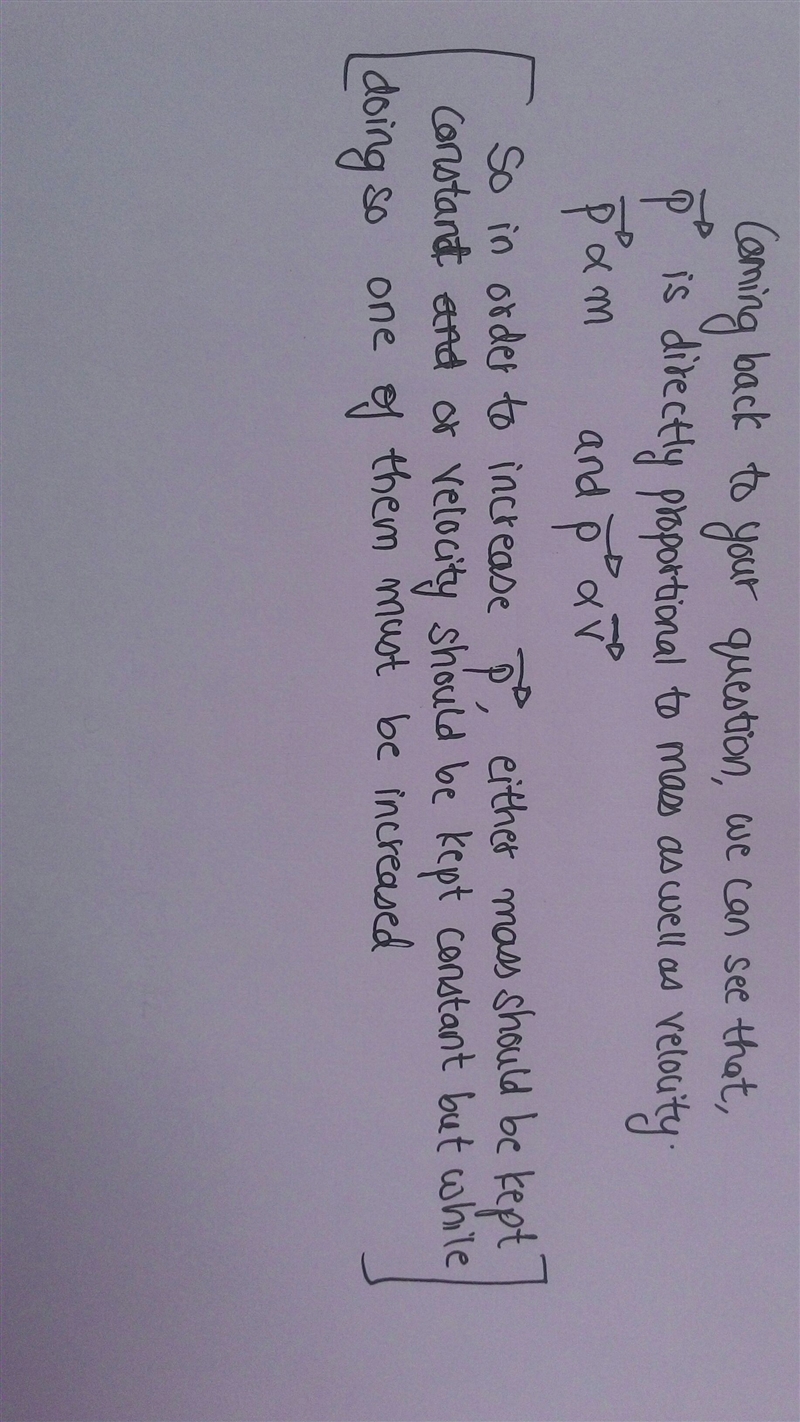 Coming back to your question, we can see that,
p⃗ is directly proportional to mass as well as velocity.
p⃗ ∝ m and p⃗ ∝ v⃗
So in order to increase p⃗, either mass should be kept
constant and or velocity should be kept constant but while
doing so one of them must be increased